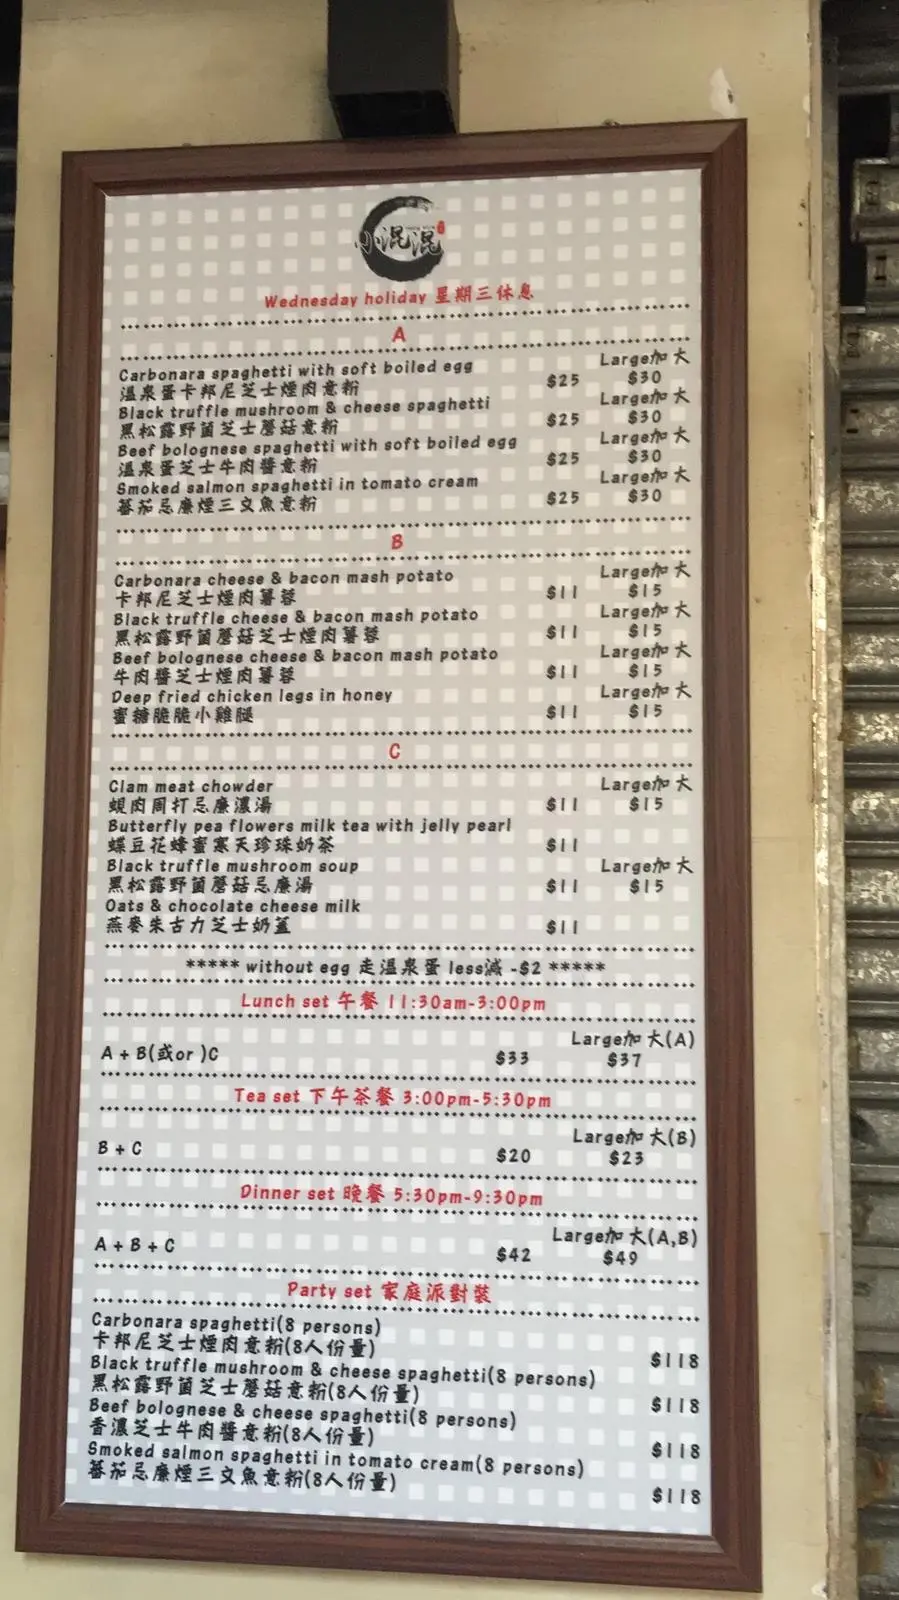 小混混
Wednesday holiday 星期三休息
A
Carbonara spaghetti with soft boiled egg Large加大
溫泉蛋卡邦尼芝士煙肉意粉 $25 $30
Black truffle mushroom & cheese spaghetti Large加大
黑松露野菌芝士蘑菇意粉 $25 $30
Beef bolognese spaghetti with soft boiled egg Large加大
溫泉蛋芝士牛肉醬意粉 $25 $30
Smoked salmon spaghetti in tomato cream Large加大
蕃茄忌廉煙三文魚意粉 $25 $30
B
Carbonara cheese & bacon mash potato Large加大
卡邦尼芝士煙肉薯蓉 $11 $15
Black truffle cheese & bacon mash potato Large加大
黑松露野菌蘑菇芝士煙肉薯蓉 $11 $15
Beef bolognese cheese & bacon mash potato Large加大
牛肉醬芝士煙肉薯蓉 $11 $15
Deep fried chicken legs in honey Large加大
蜜糖脆脆小雞腿 $11 $15
C
Clam meat chowder Large加大
蜆肉周打忌廉濃湯 $11 $15
Butterfly pea flowers milk tea with jelly pearl
蝶豆花蜂蜜寒天珍珠奶茶 $11
Black truffle mushroom soup Large加大
黑松露野菌蘑菇忌廉湯 $11 $15
Oats & chocolate cheese milk
燕麥朱古力芝士奶蓋 $11
***** without egg 走溫泉蛋 less減 -$2 *****
Lunch set 午餐 11:30am-3:00pm
Large加大(A)
A + B(或or )C $33 $37
Tea set 下午茶餐 3:00pm-5:30pm
Large加大(B)
B + C $20 $23
Dinner set 晚餐 5:30pm-9:30pm
Large加大(A,B)
A + B + C $42 $49
Party set 家庭派對裝
Carbonara spaghetti(8 persons)
卡邦尼芝士煙肉意粉(8人份量) $118
Black truffle mushroom & cheese spaghetti(8 persons)
黑松露野菌芝士蘑菇意粉(8人份量) $118
Beef bolognese & cheese spaghetti(8 persons)
香濃芝士牛肉醬意粉(8人份量) $118
Smoked salmon spaghetti in tomato cream(8 persons)
蕃茄忌廉煙三文魚意粉(8人份量) $118